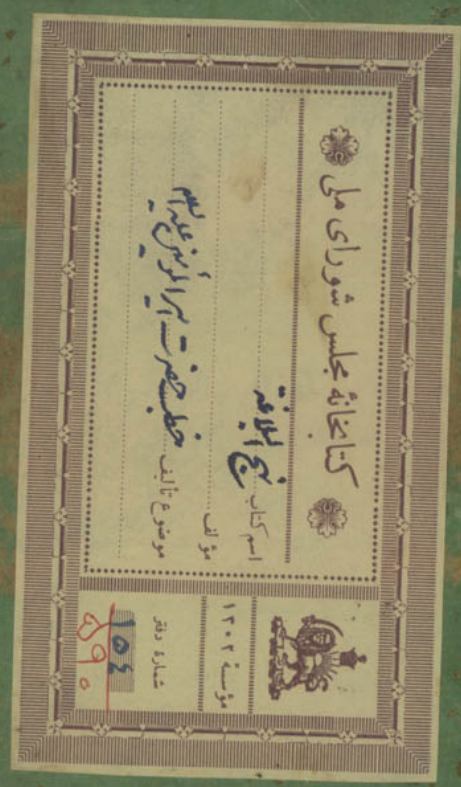 کتابخانهٔ مجلس شورای ملی
اسم کتاب نهج البلاغة
مؤلف
موضوع تألیف خطب حضرت امیر المؤمنین علیه السلام
مؤسسهٔ ۱۳۰۲
شمارهٔ دفتر
۵۹۰